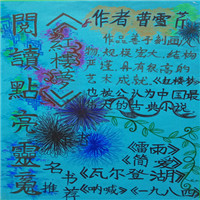 閱讀點亮靈魂
《紅樓夢》
作者 曹雪芹
作品善于刻画人
物,规模宏大、结构
严谨,具有很高的
艺术成就,《红楼梦》
也被公认为中国最
的古典小说
名书推荐
《雷雨》
《简爱》
《瓦尔登湖》
《呐喊》《一九八四》